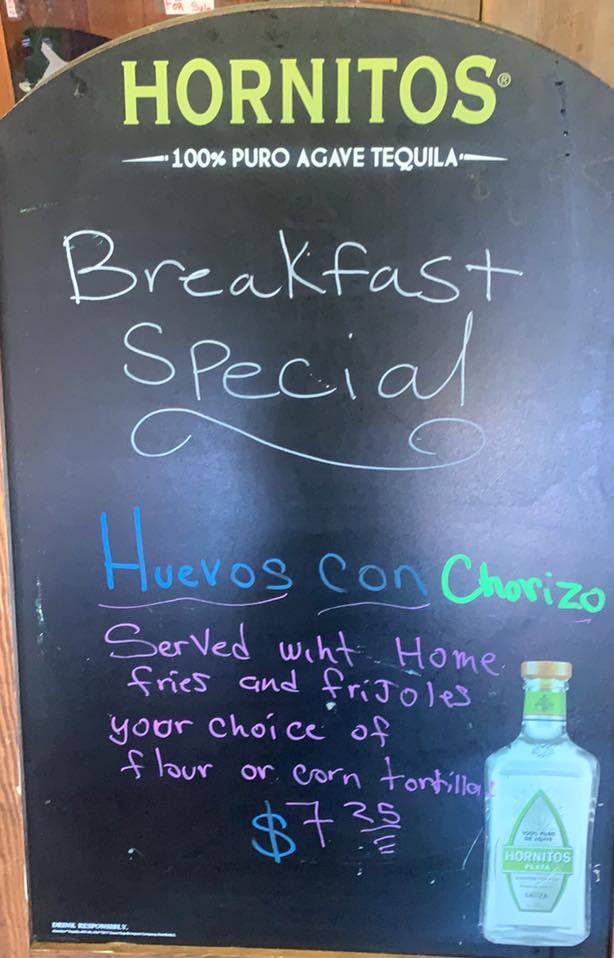 For Sale
HORNITOS®
100% PURO AGAVE TEQUILA
Breakfast
Special
Huevos con Chorizo
Served wiht Home
fries and frijoles
your choice of
flour or corn tortillas
$7 25
100% PURO
DE AGAVE
HORNITOS
PLATA
SAUZA
DRINK RESPONSIBLY.